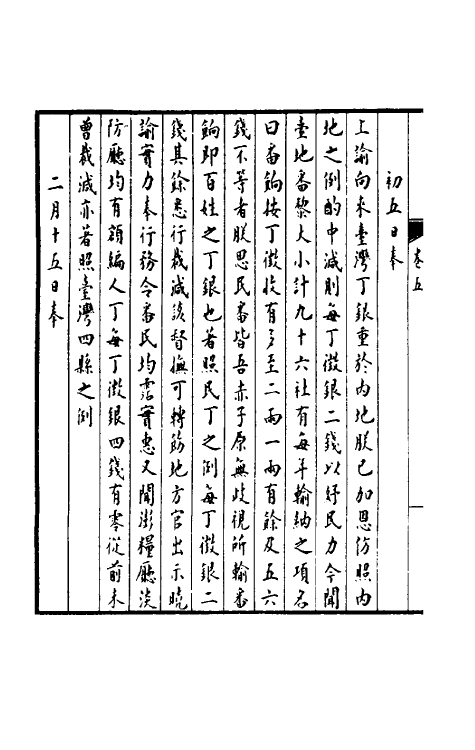 卷五
初五日奉
上諭向来臺灣丁銀重於內地朕已加恩仿照內
地之例酌中減則每丁徵銀二錢以紓民力今聞
臺地番黎大小計九十六社有每年輸納之項名
曰番餉按丁徵收有多至二兩一兩有餘及五六
錢不等者朕思民番皆吾赤子原無歧視所輸番
餉即百姓之丁銀也著照民丁之例每丁徵銀二
錢其餘悉行裁減該督撫可轉飭地方官出示曉
諭實力奉行務令番民均霑實惠又聞澎糧廳淡
防廳均有額編人丁每丁徵銀四錢有零從前未
曾裁減亦著照臺灣四縣之例
二月十五日奉